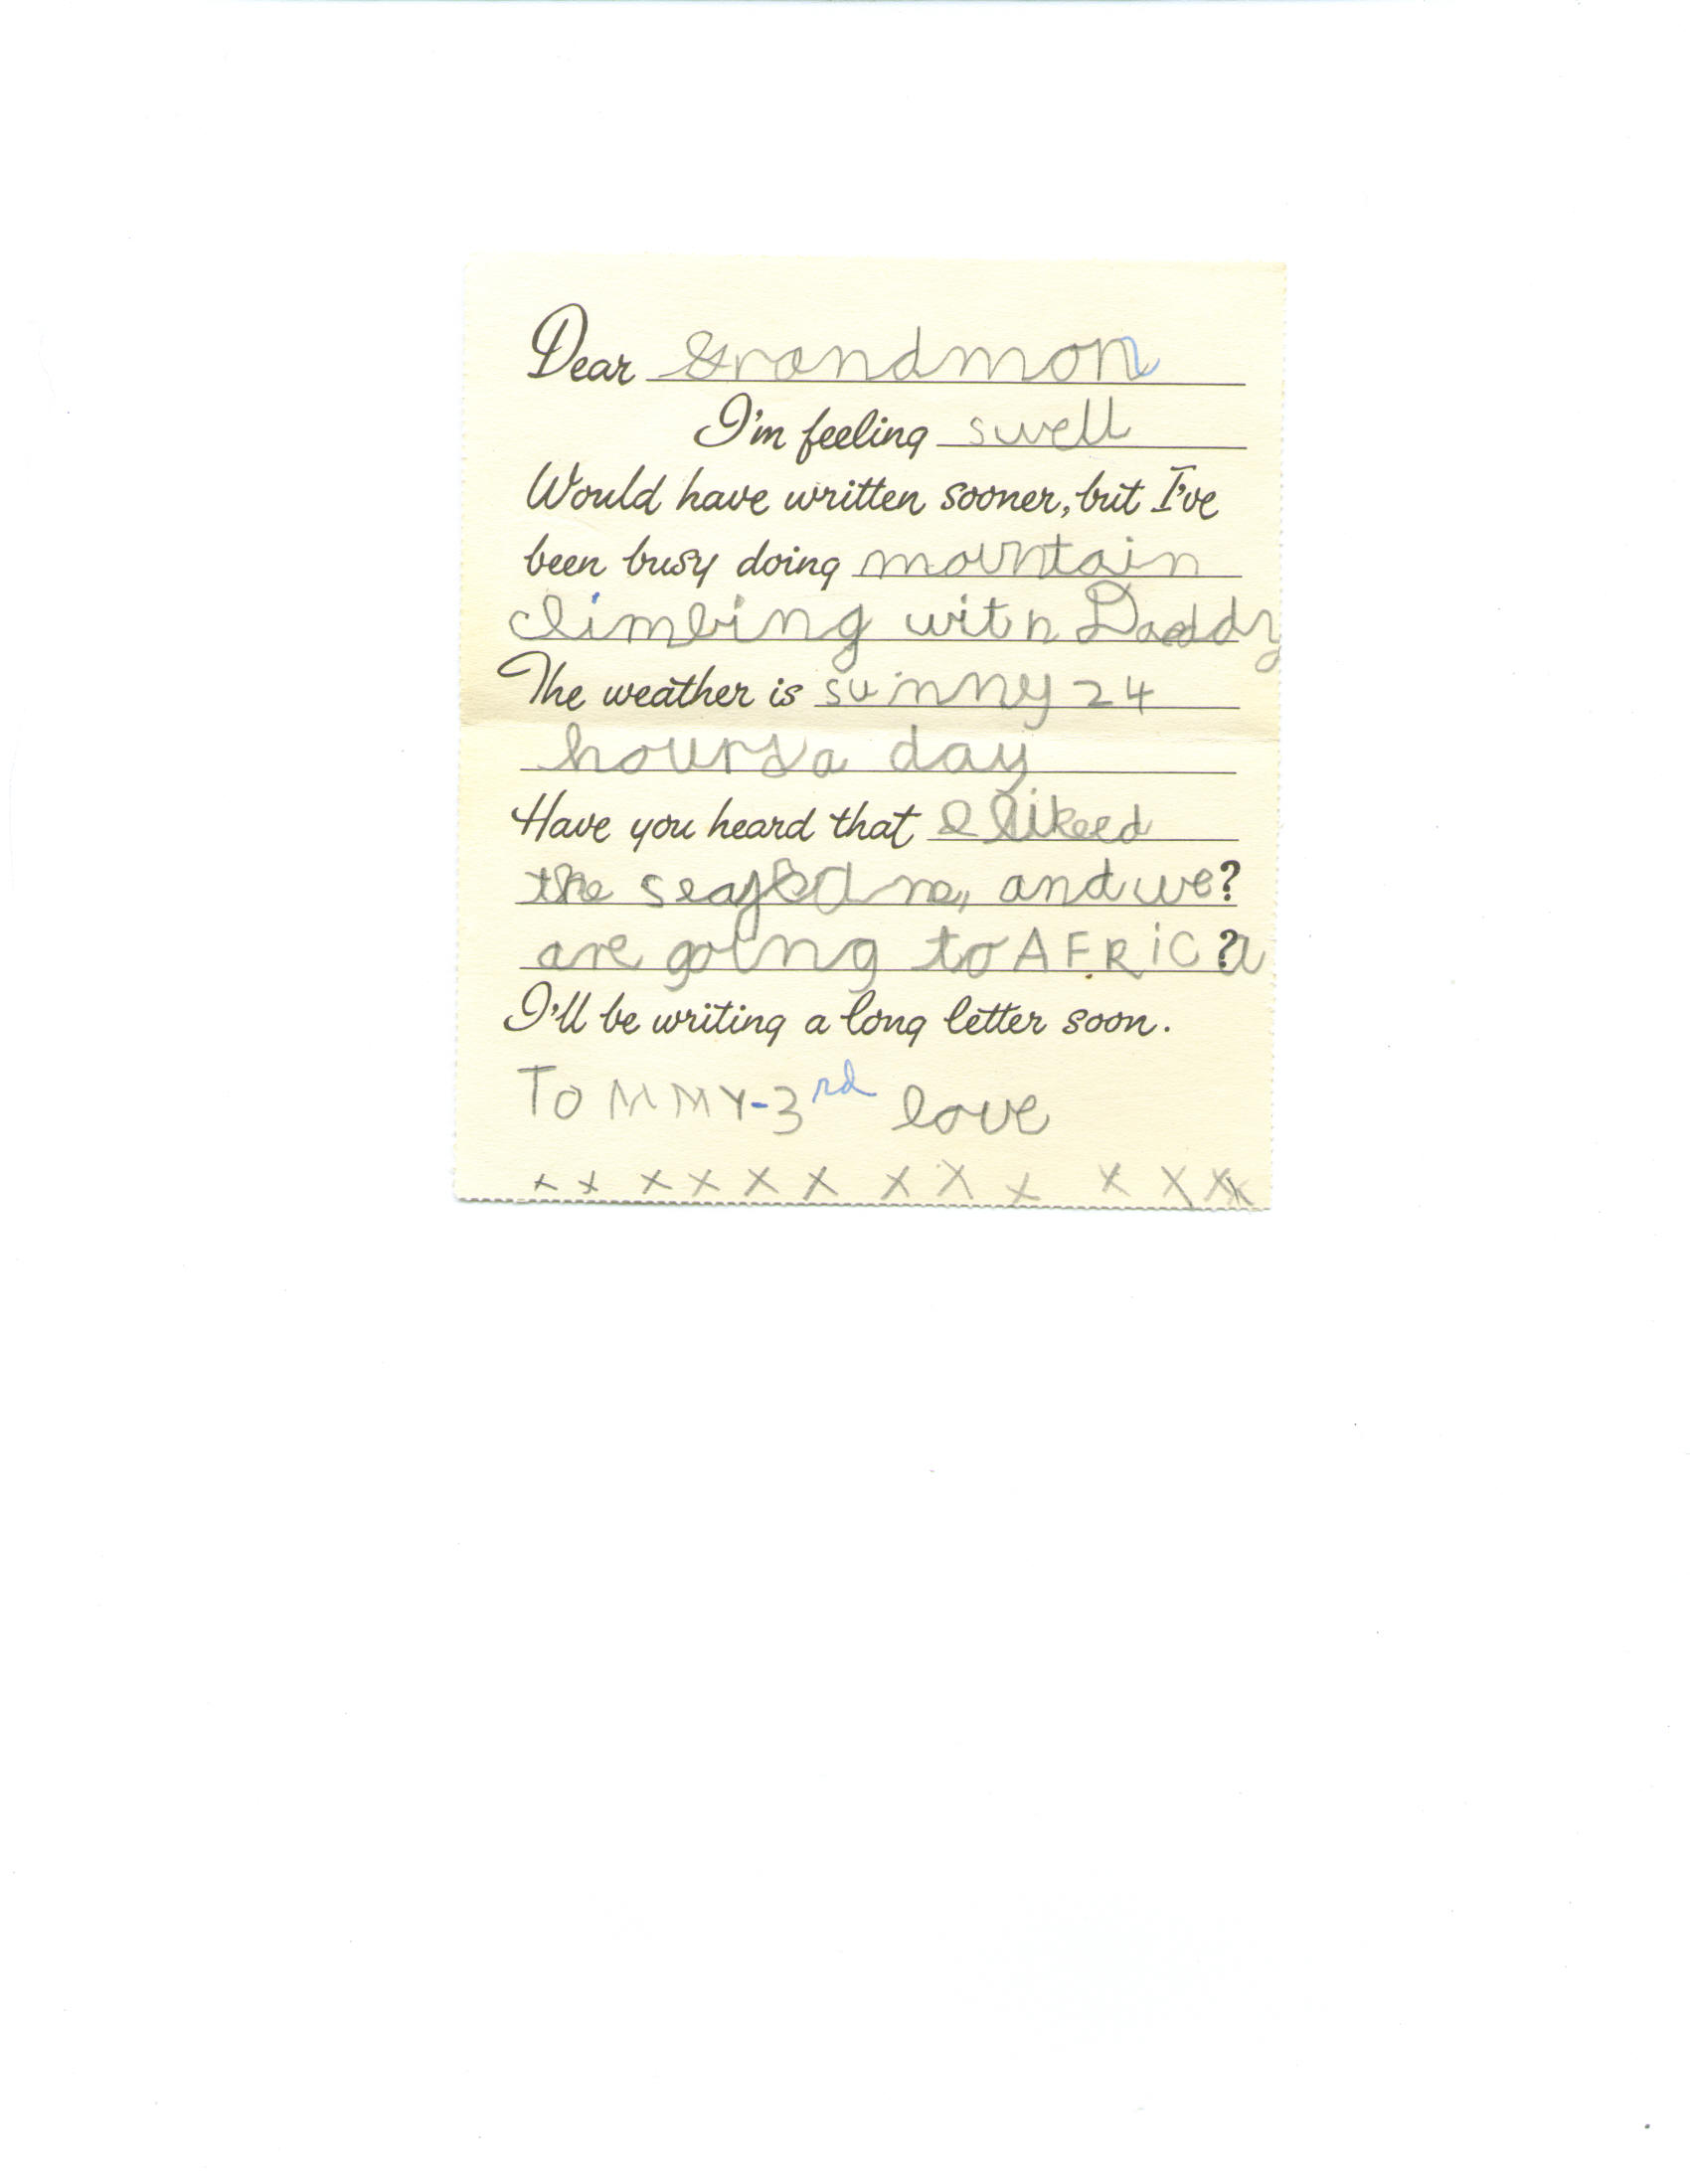 Dear Grandmon
I'm feeling swell
Would have written sooner, but I've
been busy doing mountain
climbing with Daddy
The weather is sunny 24
hours a day
Have you heard that I likeed
the and we?
are going to AFRiC?a
I'll be writing a long letter soon.
ToMMMY-3rd love
x x x x x x x x x x x x x